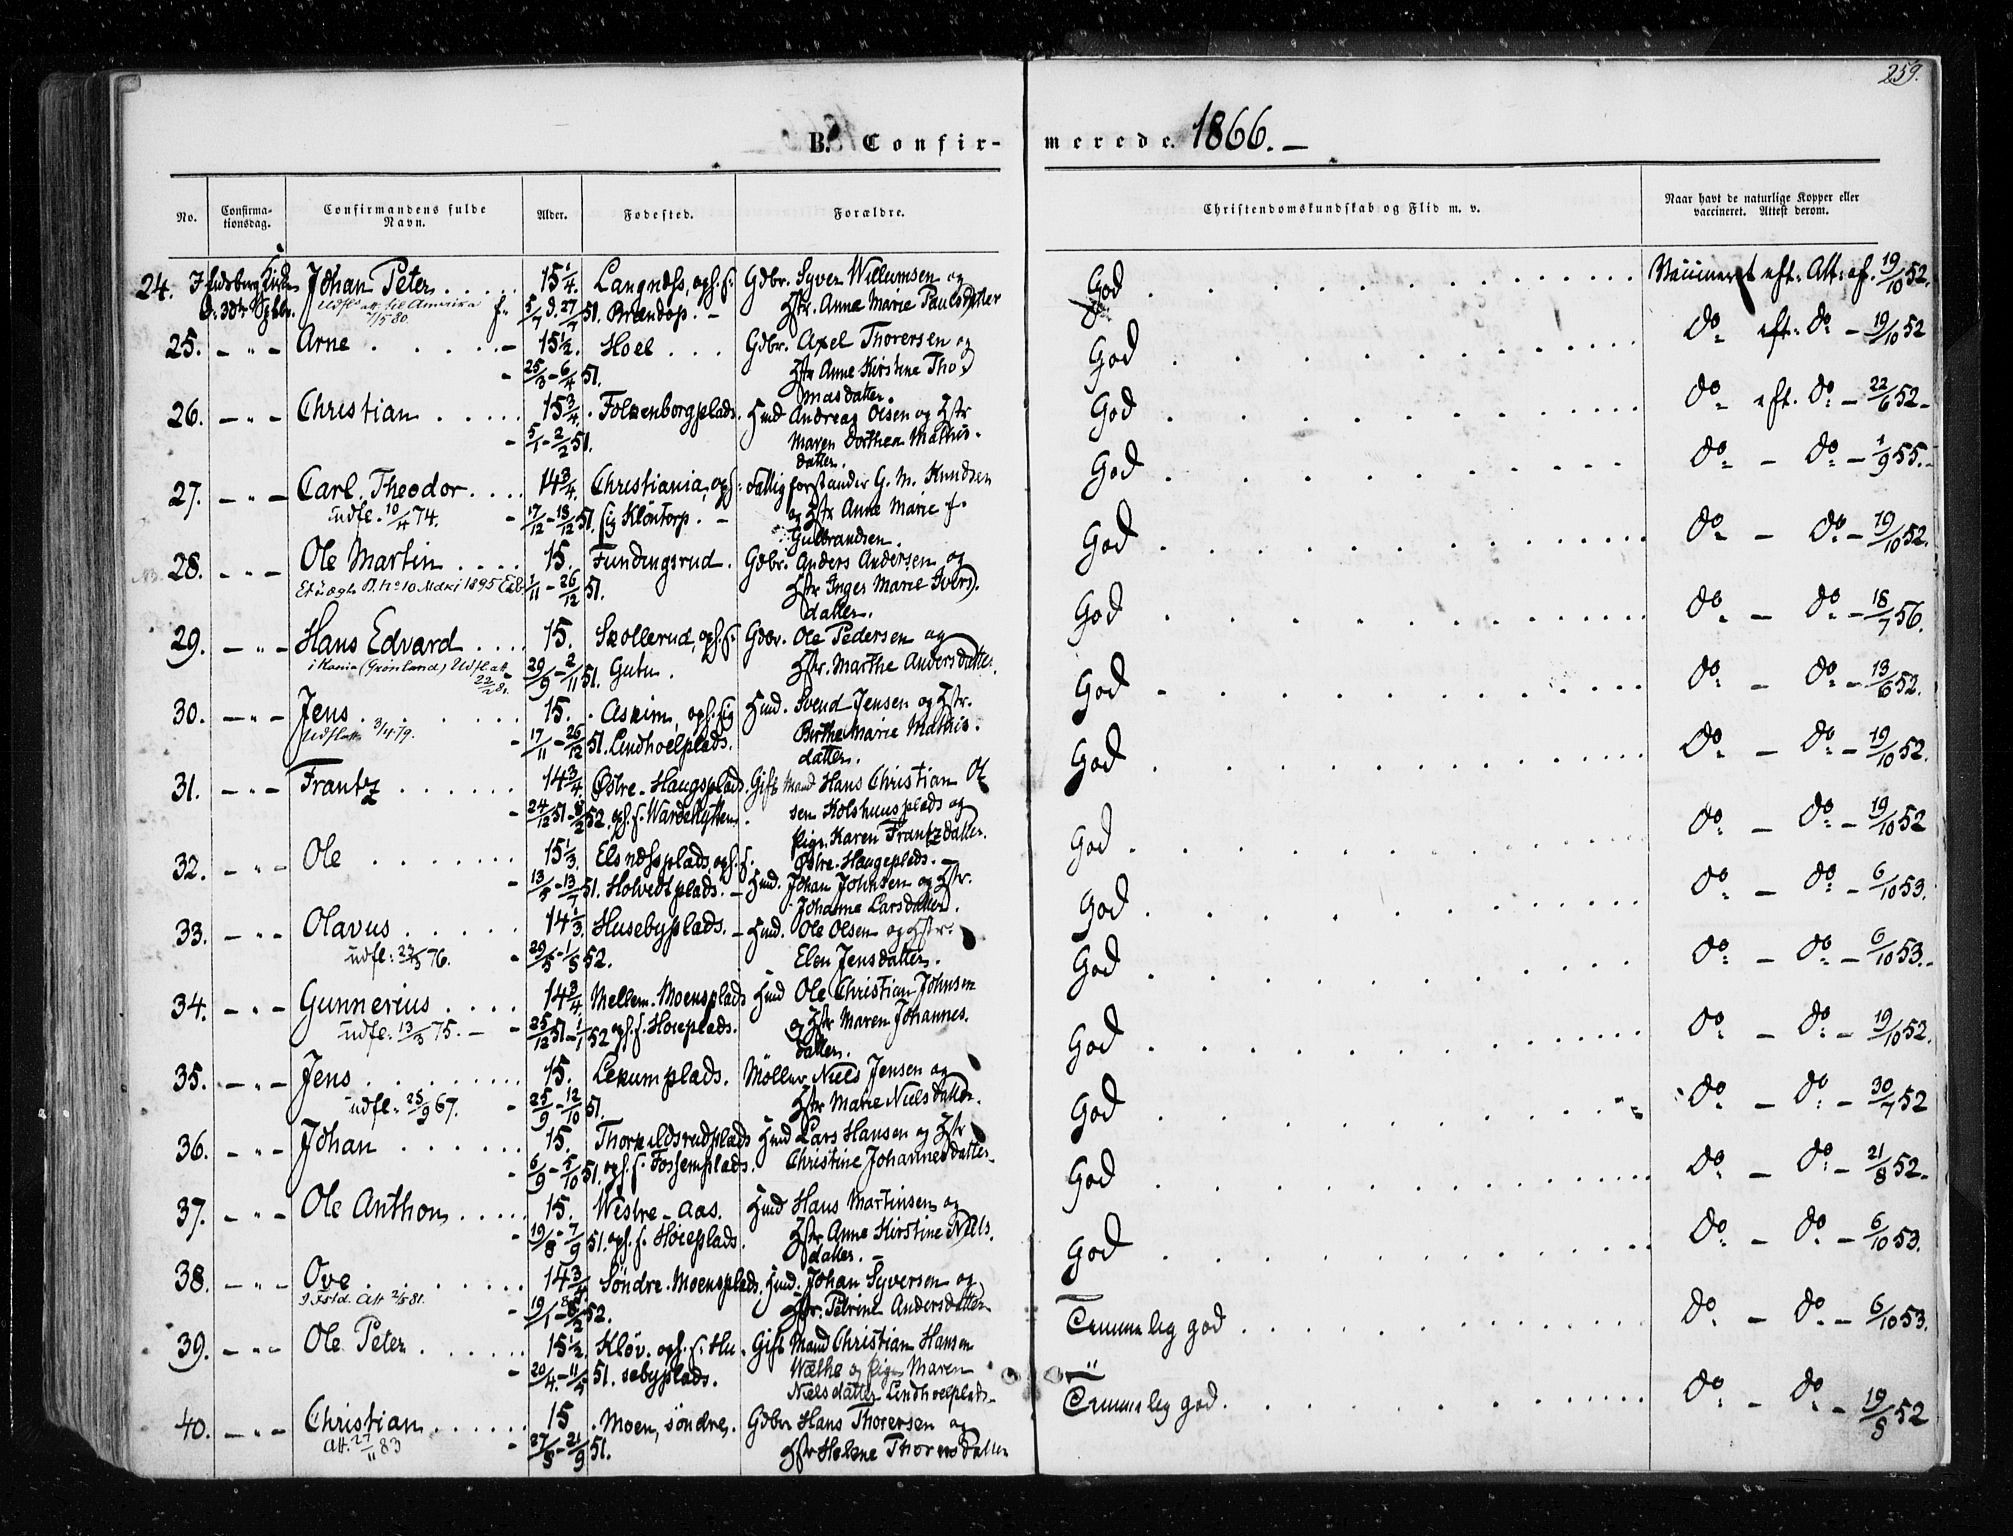 259.
B. Confirmerede. 1866. –
No. Confirmationsdag. Confirmandens fulde Navn. Alder. Fødested. Forældre. Christendomskundskab og Flid m. v. Naar havt de naturlige Kopper eller vaccineret. Attest derom.
24. I Eidsberg Kirke Johan Peter . . . . 15 1/4. Langnæss, oph. f. Gdbr. Syver Willumsen og God . . . Vaccineret eft. Att. af. 19/10 52.
d. 30te Sptbr. Udfl. att. til Amerika 7/5 80. f. 5/7 d. 27/7 51. Brændop. – Hstr. Anne Marie Paulsdatter
25. – " – Arne . . . . . – 15 1/2. Hoel . . . Gdbr. Axel Thorersen og God . . . do eft. do – 19/10 52
– 25/3 – 6/4 51. Hstr Anne Kirstine Tho-
masdatter.
26. – " – Christian . . . . . 15 3/4. Folkenborgplads. Hmd Andreas Olsen og Hstr God . . . do eft. do – 22/6 52 –
– 5/1 – 2/2 51. Maren Dorthea Mathis-
datter.
27. – " – Carl Theodor . . . . 14 3/4. Christiania, oph. Fattigforstander G. M. Knudsen God . . . do – do – 1/9 55. –
udfl. 10/4 74. – 17/12 – 18/12 51. sig Kløntorp. – og Hstr Anne Marie f.
Gulbrandsen.
28. – " – Ole Martin . . . . 15. Fundingsrud. Gdbr. Anders Andersen og God . . . do – do – 19/10 52.
1/11 – 26/12 51. Hstr Inger Marie Ivers-
datter.
29. – " – Hans Edvard . . . . 15. Skollerud, oph. f. Gdbr. Ole Pedersen og God . . . do – do – 18/7 56.
(Grønland) Udfl. att. 22/2 8. 29/9 – 2/11 51. Gutu . Hstr. Marthe Andersdatter.
30. – " – Jens . . . . . . 15. . Askim, oph. sig Hmd. Svend Jensen og Hstr. God . . . do – do – 13/6 52.
Udfl. att. 3/4 79. – 17/11 – 26/12 51. Lindhoelplads. Birthe Marie Mathis-
datter.
31. – " – Frantz . . . . . . 14 3/4. Østre-Haugsplads. Gift Mand Hans Christian Ol- God . . . do – do – 19/10 52.
– 24/12 51 – 8/2 52. oph. f. Wardehytten. sen Kolshuusplads og
Pige Karen Frantzdatter.
Østre-Haugeplads. –
32. – " – Ole . . . . . . . 15 1/3. Elsnæssplads, oph. f. God . . . do – do – 19/10 52
– 13/5 – 13/7 51. Holvedtplads. – Hmd. Johan Johnsen og Hstr.
Johanne Larsdatter.
33. – " – Olavus . . . . . 14 1/3. Husebyplads. – Hmd. Ole Olsen og Hstr. God . . . do – do – 6/10 53.
udfl: 23/3 76. – 29/5 – 1/8 52. Elen Jensdatter.
34. – " – Gunnerius . . . . 14 3/4. Mellem-Moensplads Hmd Ole Christian Johnsen God . . . do – do – 6/10 53. –
udfl: 13/3 75. – – 25/12 51 – 1/1 52 oph. f. Hoieplads. og Hstr Maren Johannes.
datter.
35. – " – Jens . . . . . . . 15. Lekumplads. Møller Niels Jensen og God . . . do – do – 19/10 52.
udfl: 25/9 67. – 25/9 – 12/10 51. Hstr Marie Nielsdatter.
36. – " – Johan . . . . . . 15. Thorkildsrudplads Hmd Lars Hansen og Hstr God . . . do – do – 30/7 52
– 6/9 – 5/10 51. oph. f. Fossemplads. Christine Johannesdatter –
37. – " – Ole Anthon . . . . 15. Westre-Aas. Hmd Hans Martinsen og God . . . do – do – 21/8 52 –
– 19/8 – 7/9 51. oph. f. Høieplads. Hstr Anne Kirstine Niels.
datter. –
38. – " – Ove . . . . . . . 14 3/4 Søndre-Moensplads. Hmd. Johan Syversen og God . . . do – do – 6/10 53.
Att 2/5 81. – 19/1 – 8/2 52. Hstr. Petrine Andersdatter
39. – " – Ole Peter . . . . . 15 1/2. Kløv. oph. f. Hu- Gift Mand Christian Hansen Temmelig god . . . do – do – 6/10 53.
– 20/4 – 11/5 51. sebyplads. Wæthe og Pige Maren
Nielsdatter Lindhoelplads –
40. – " – Christian . . . . . 15 . Moen, søndre. Gdbr Hans Thorersen og Temmelig god . . . do – do – 19/8 52
att. 27/11 83 – 27/8 – 21/9 51. Hstr Helene Thorersdatter